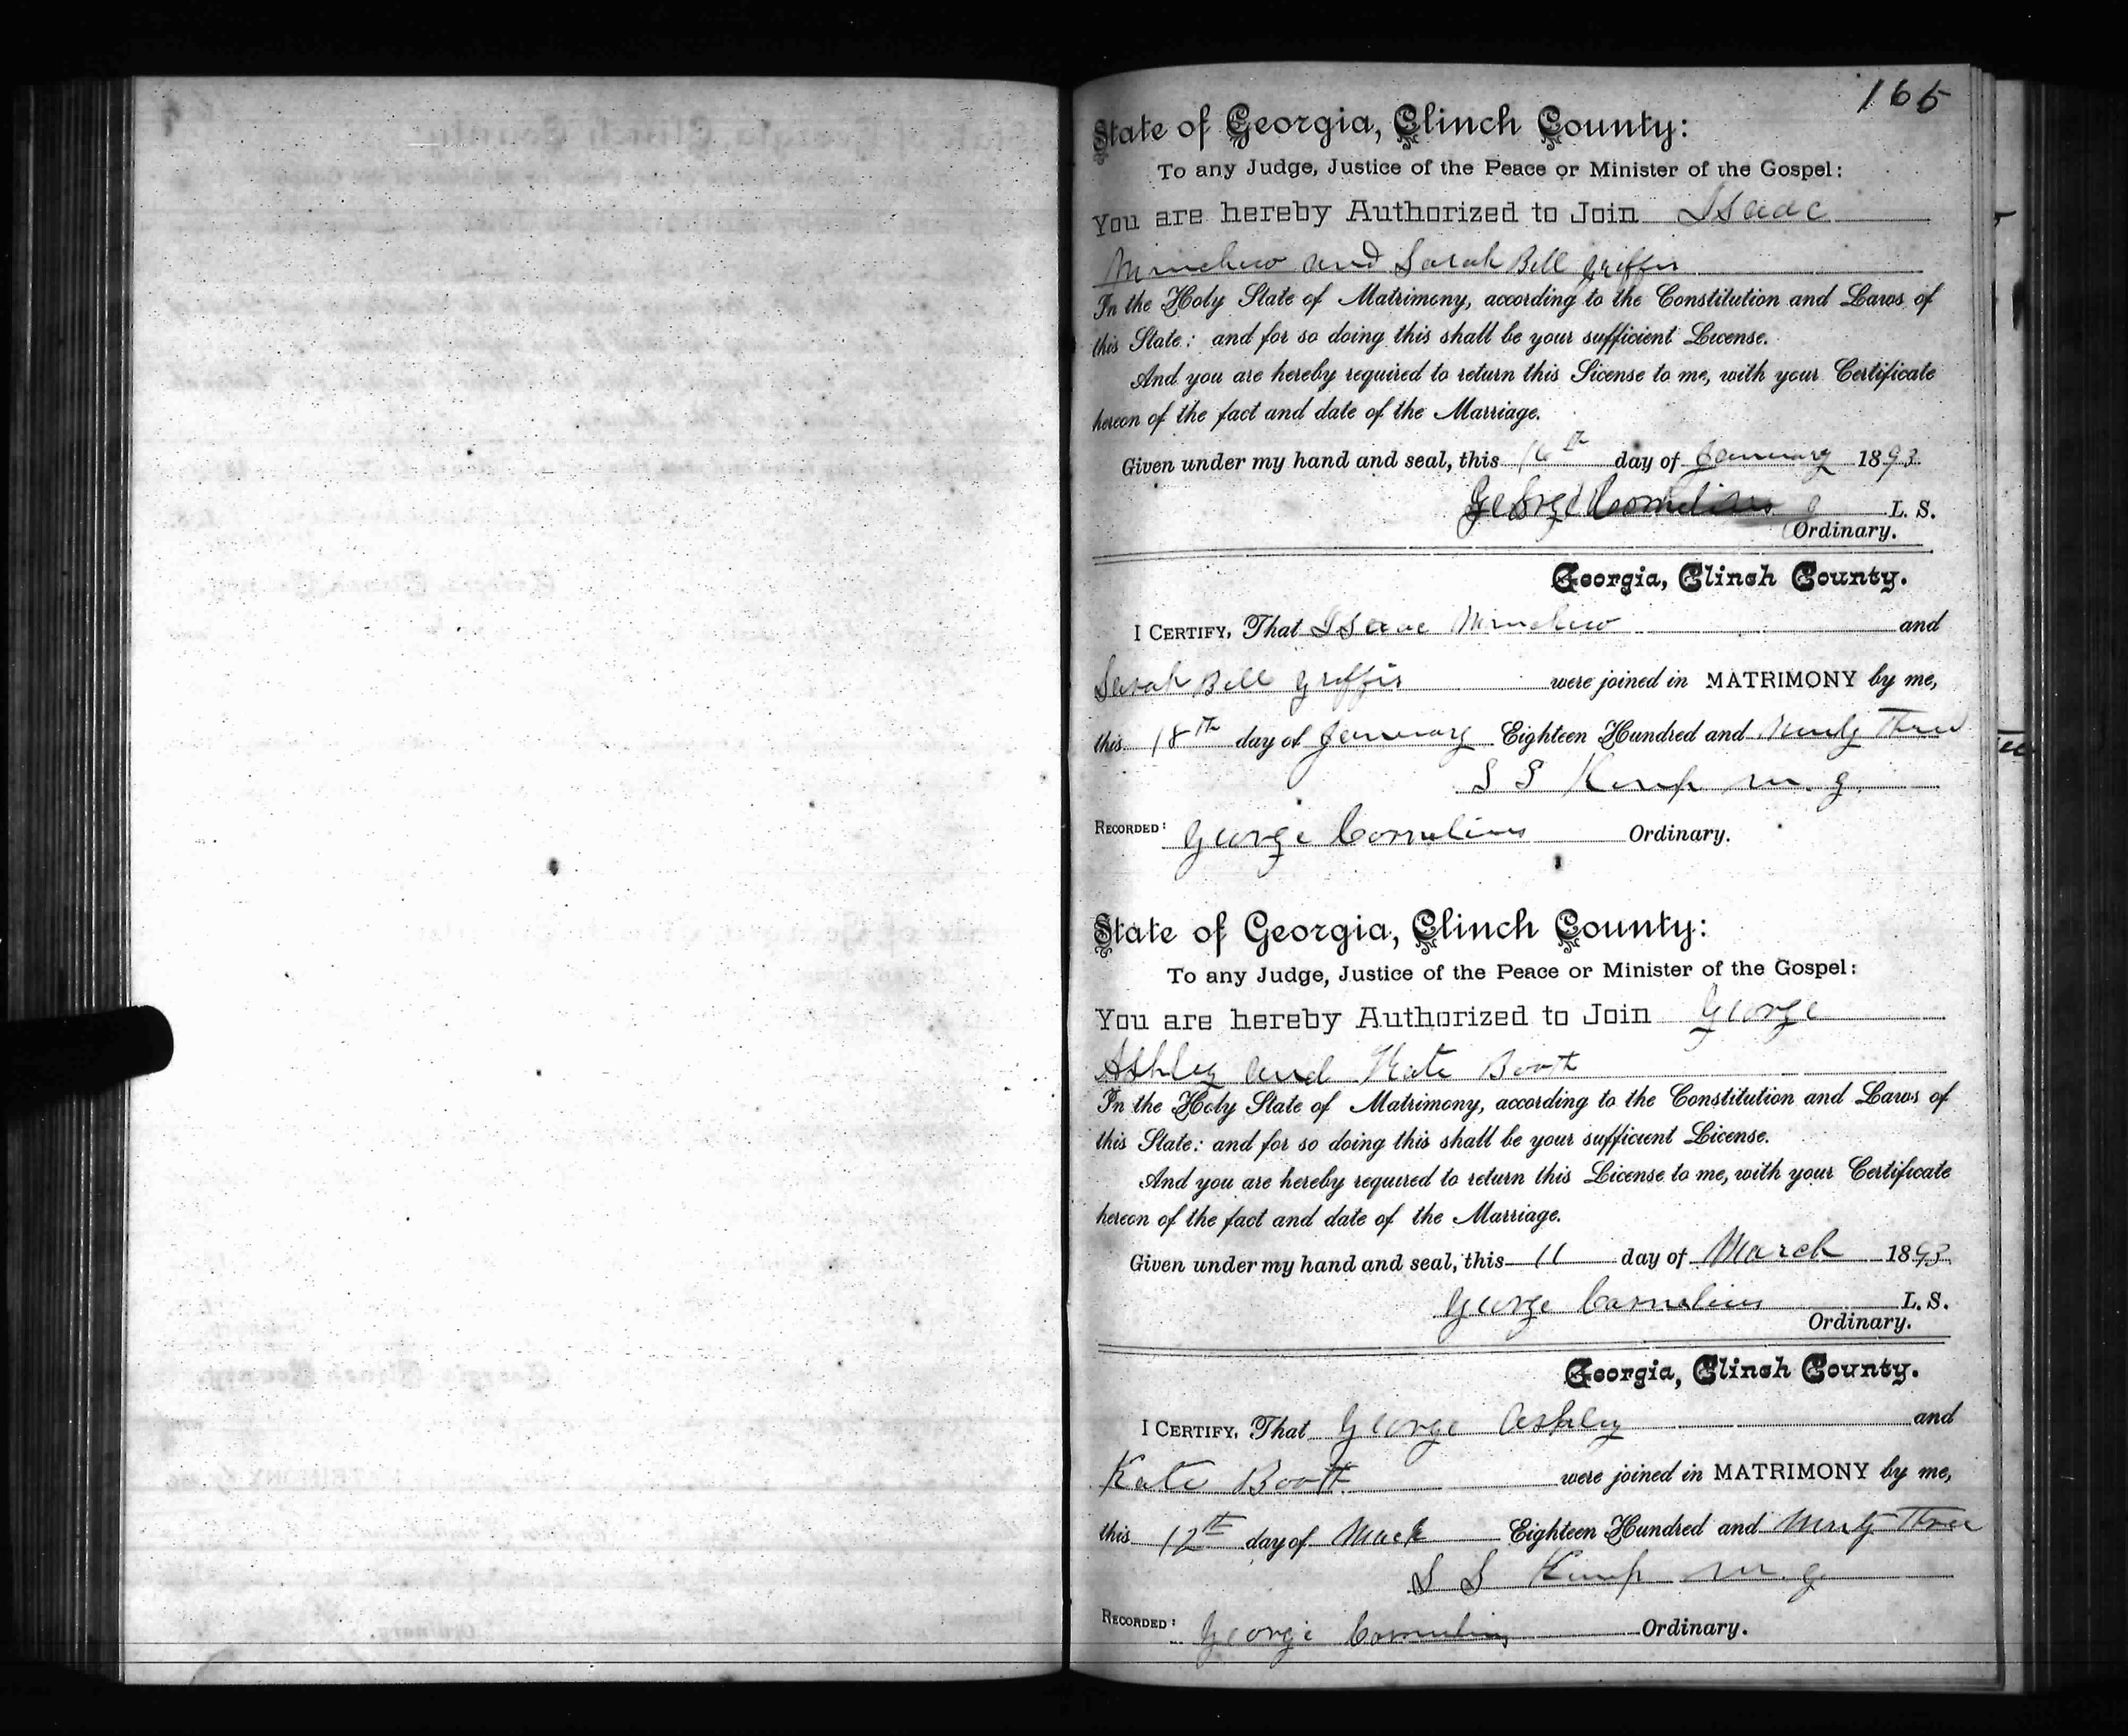 165
State of Georgia, Clinch County:
To any Judge, Justice of the Peace or Minister of the Gospel:
You are hereby Authorized to Join Isaac
Minchew and Sarah Bell Griffis
In the Holy State of Matrimony, according to the Constitution and Laws of
this State: and for so doing this shall be your sufficient License.
And you are hereby required to return this License to me, with your Certificate
hereon of the fact and date of the Marriage.
Given under my hand and seal, this 16th day of January 1893.
George Cornelius L. S.
Ordinary.
Georgia, Clinch County.
I CERTIFY, That Isaac Minchew and
Sarah Bell Griffis were joined in MATRIMONY by me,
this 18th day of January Eighteen Hundred and Ninety Three
S S Kemp M. G.
RECORDED: George Cornelius Ordinary.
State of Georgia, Clinch County:
To any Judge, Justice of the Peace or Minister of the Gospel:
You are hereby Authorized to Join George
Ashley and Kate Booth
In the Holy State of Matrimony, according to the Constitution and Laws of
this State: and for so doing this shall be your sufficient License.
And you are hereby required to return this License to me, with your Certificate
hereon of the fact and date of the Marriage.
Given under my hand and seal, this 11 day of March 1893.
George Cornelius L. S.
Ordinary.
Georgia, Clinch County.
I CERTIFY, That George Ashley and
Kate Booth were joined in MATRIMONY by me,
this 12th day of March Eighteen Hundred and Ninety Three
S S Kemp M. G.
RECORDED: George Cornelius Ordinary.